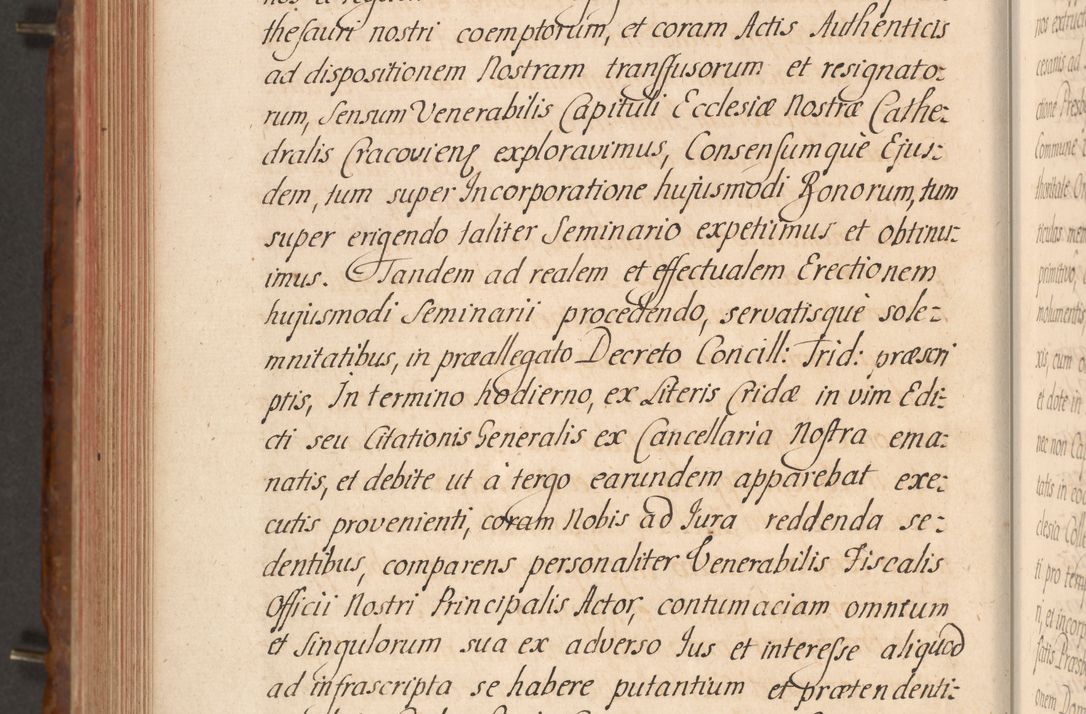 thesauri nostri coemptorum, et coram Actis Authenticis
ad dispositionem Nostram transfusorum et resignato:
rum, Sensum Venerabilis Capituli Ecclesiæ Nostræ Cathe:
dralis Cracovien exploravimus, Consensumquè Ejus:
dem, tum super Incorporatione hujusmodi Bonorum, tum
super erigendo taliter Seminario expetiimus et obtinu:
imus. Tandem ad realem et effectualem Erectionem
hujusmodi Seminarii procedendo, servatisquè sole:
mnitatibus, in præallegato Decreto Concill: Trid: præscri
ptis, In termino hodierno, ex Literis Cridæ in vim Edi:
cti seu Citationis Generalis ex Cancellaria Nostra ema:
natis, et debite ut à tergo earundem apparebat exe:
cutis provenienti, coram Nobis ad Jura reddenda se:
dentibus, comparens personaliter Venerabilis Fiscalis
Officii Nostri Principalis Actor, contumaciam omnium
et singulorum sua ex adverso Jus et interesse aliquod
ad infrascripta se habere putantium et prætendenti: